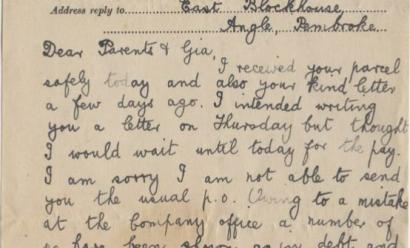 Address reply to East Blockhouse,
Angle, Pembroke.
Dear Parents & Gia,
I received your parcel
safely today and also your kind letter
a few days ago. I intended writing
you a letter on Thursday but thought
I would wait until today for the pay.
I am sorry I am not able to send
you the usual p.o. Owing to a mistake
at the Company office a number of
us have been shown as in debt and